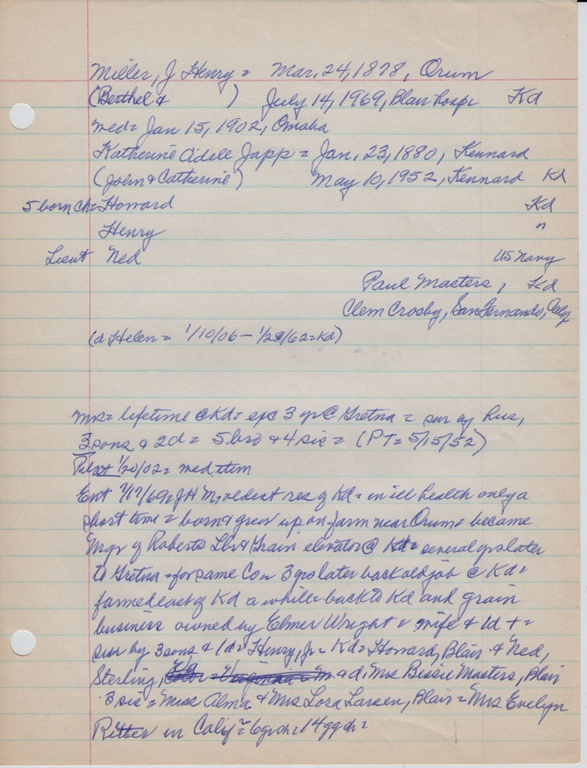 Miller, J Henry = Mar. 24, 1878, Orum
(Berthel & ) July 14, 1969, Blair Hosp Kd
med= Jan 15, 1902, Omaha
Katherine Adele Japp = Jan. 23, 1880, Kennard
(John & Catherine) May 10, 1952, Kennard Kd
5 born ch= Howard Kd
Henry "
Lieut Ned US Navy
Paul Masters, Kd
Clem Crosby, San Fernando, Calif
(d Helen = 1/10/06 - 1/29/62=Kd)
Mrs= lifetime @ Kd= exc 3 yr @ Gretna = sur by hus,
3 sons & 2d = 5 bro & 4 sis = (PT= 5/15/52)
1/20/02 = med item
Ent 7/17/69= JH M= oldest res of Kd= in ill health only a
short time = born & grew up on farm near Orum= became
Mgr of Roberts Lbr & Grain elevator @ Kd= several yrs later
to Gretna = for same Co = 3 yrs later back old job @ Kd=
farmed east of Kd a while= back to Kd and grain
business owned by Elmer Wright = wife & 1d +=
sur by 3 sons & 1d= Henry, Jr= Kd= Howard, Blair & Ned,
Sterling, & d, Mrs Bissie Masters, Blair
3 sis = Miss Alma & Mrs Lora Larsen, Blair = Mrs Evelyn
Ritter in Calif = 6 gr ch= 14 gg ch=